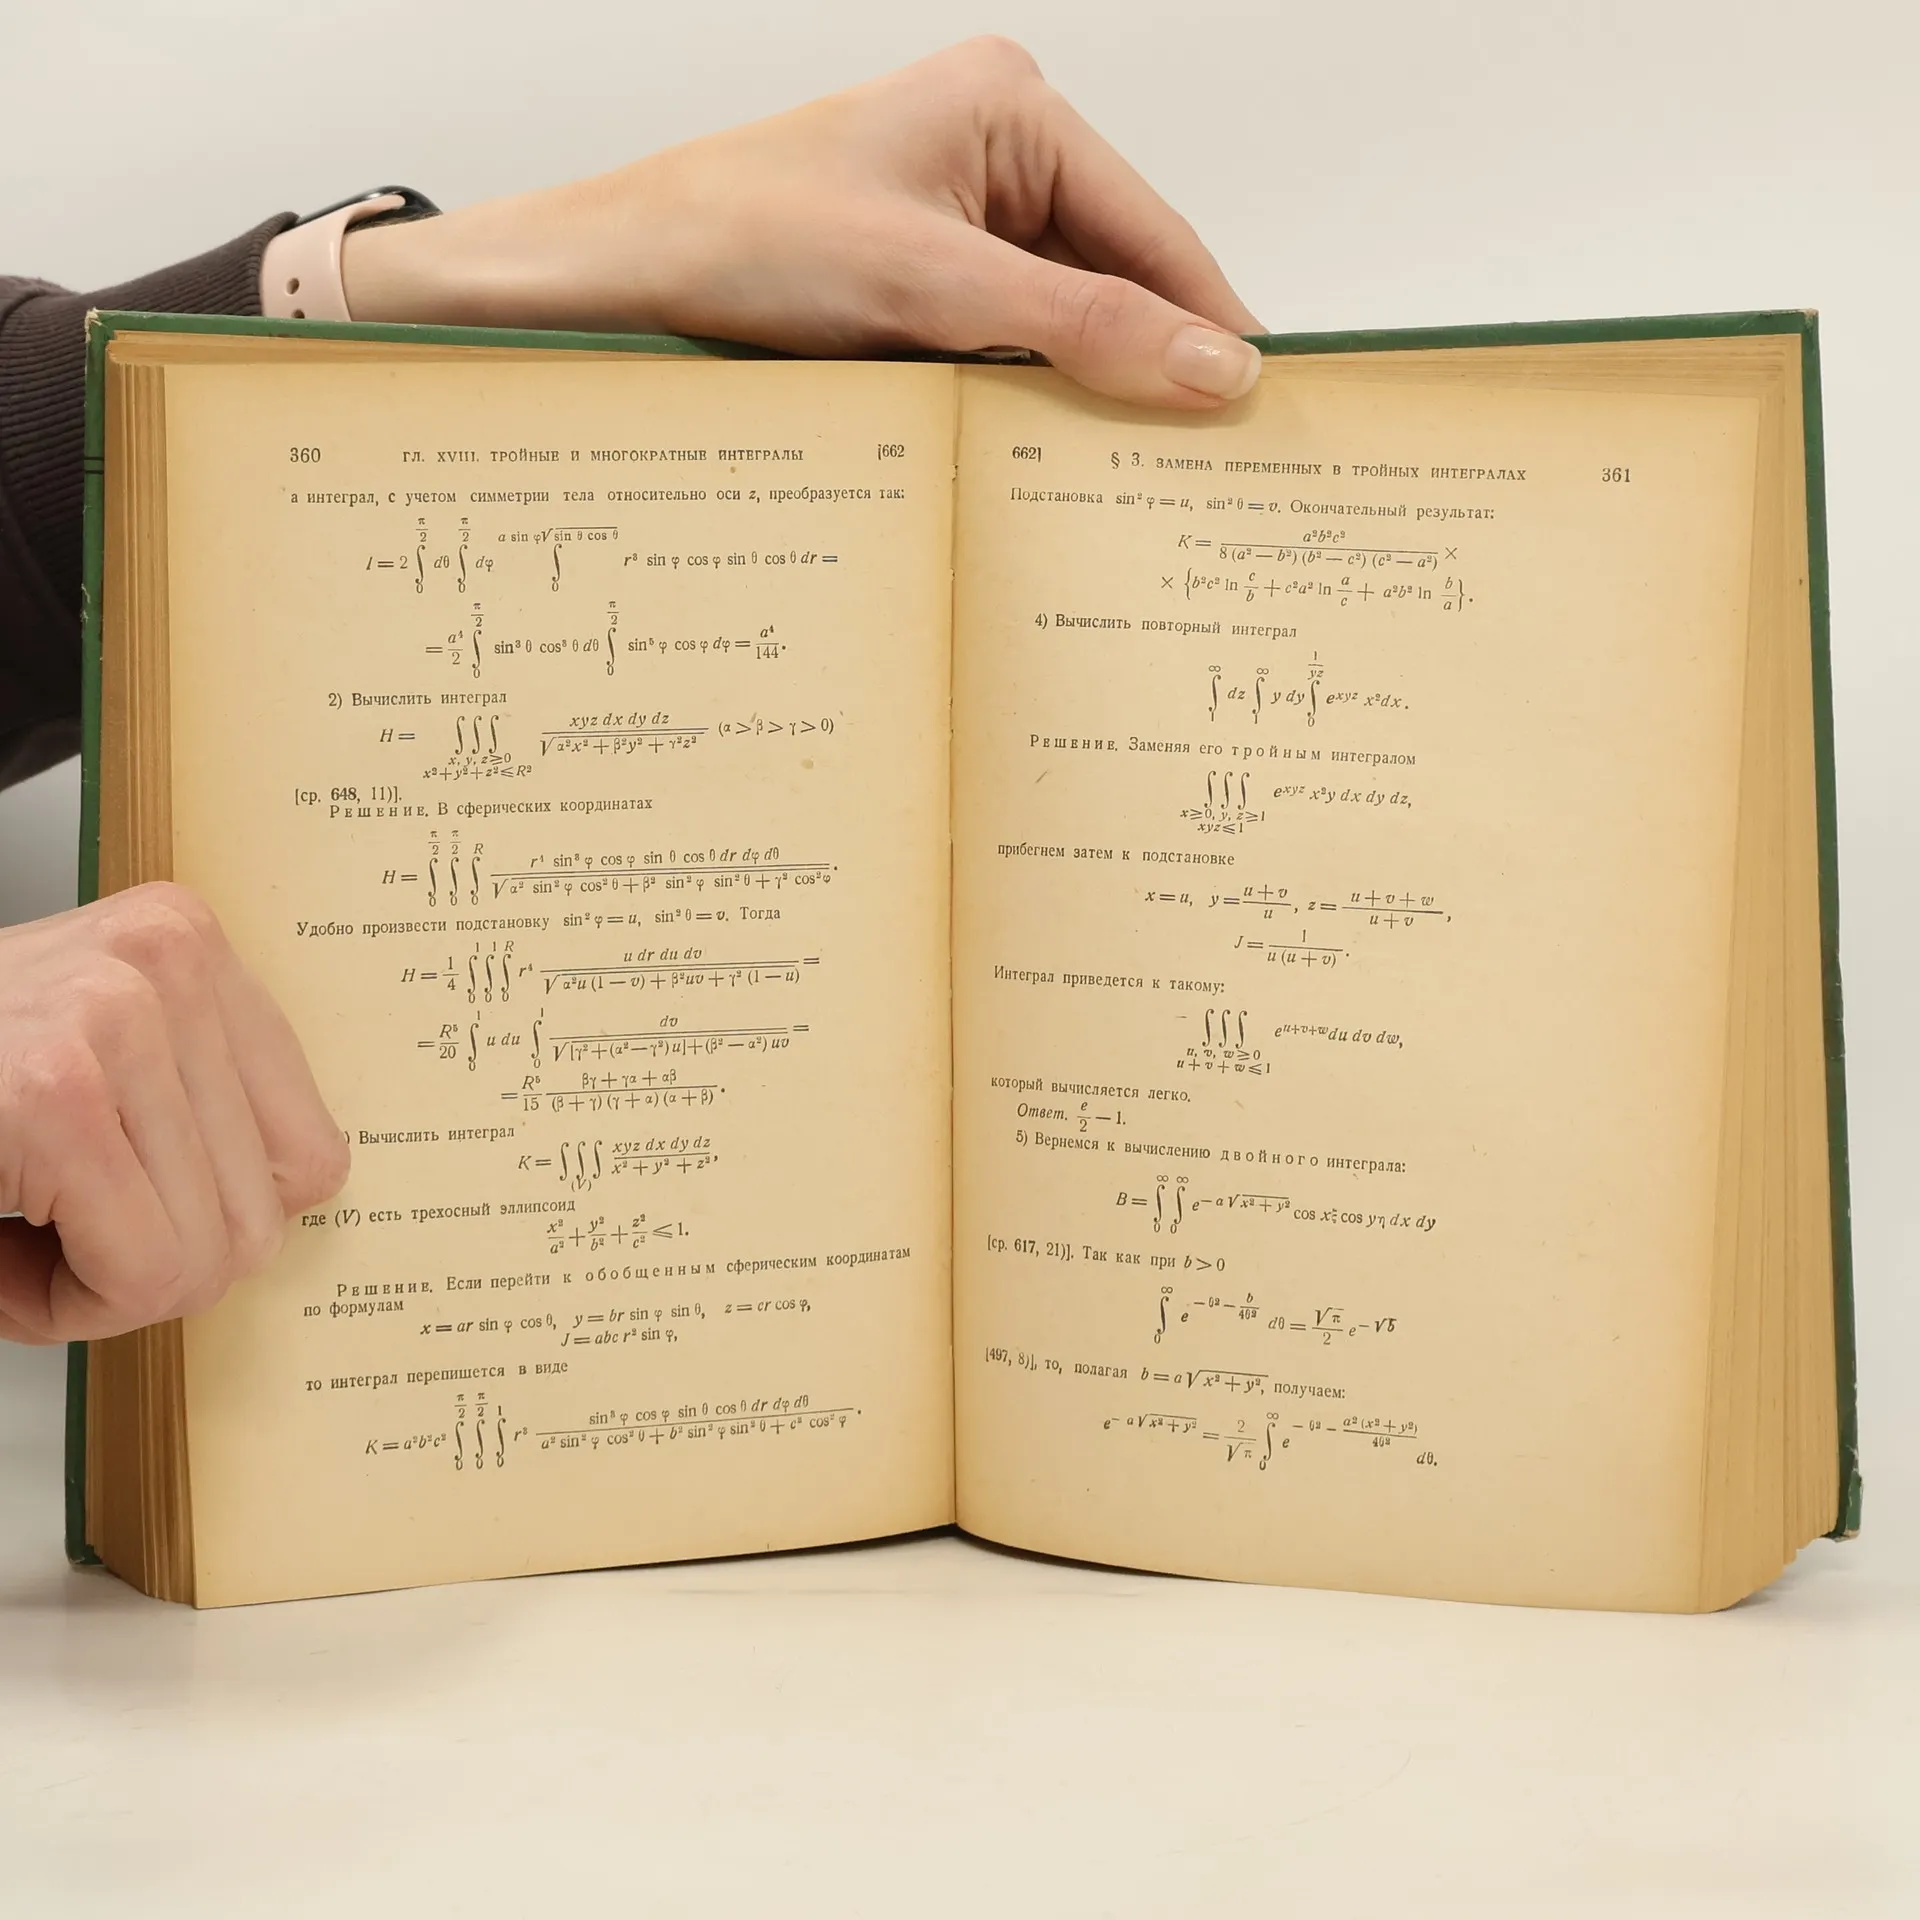 360 ГЛ. XVIII. ТРОЙНЫЕ И МНОГОКРАТНЫЕ ИНТЕГРАЛЫ [662
а интеграл, с учетом симметрии тела относительно оси z, преобразуется так:
I = 2 ∫_0^{π/2} dθ ∫_0^{π/2} dφ ∫_0^{a sin φ √(sin θ cos θ)} r³ sin φ cos φ sin θ cos θ dr =
= a⁴/2 ∫_0^{π/2} sin³ θ cos³ θ dθ ∫_0^{π/2} sin⁵ φ cos φ dφ = a⁴/144.
2) Вычислить интеграл
H = ∫∫∫_{x, y, z ≥ 0; x² + y² + z² ≤ R²} xyz dx dy dz / √(α²x² + β²y² + γ²z²) (α > β > γ > 0)
[ср. 648, 11)].
Решение. В сферических координатах
H = ∫_0^{π/2} ∫_0^{π/2} ∫_0^R r⁴ sin³ φ cos φ sin θ cos θ dr dφ dθ / √(α² sin² φ cos² θ + β² sin² φ sin² θ + γ² cos² φ).
Удобно произвести подстановку sin² φ = u, sin² θ = v. Тогда
H = 1/4 ∫_0^1 ∫_0^1 ∫_0^R r⁴ u dr du dv / √(α²u (1 — v) + β²uv + γ² (1 — u)) =
= R⁵/20 ∫_0^1 u du ∫_0^1 dv / √([γ² + (α² — γ²) u] + (β² — α²) uv) =
= R⁵/15 (βγ + γα + αβ) / ((β + γ) (γ + α) (α + β)).
) Вычислить интеграл
K = ∫∫∫_{(V)} xyz dx dy dz / (x² + y² + z²),
где (V) есть трехосный эллипсоид
x²/a² + y²/b² + z²/c² ≤ 1.
Решение. Если перейти к обобщенным сферическим координатам
по формулам
x = ar sin φ cos θ, y = br sin φ sin θ, z = cr cos φ,
J = abc r² sin φ,
то интеграл перепишется в виде
K = a²b²c² ∫_0^{π/2} ∫_0^{π/2} ∫_0^1 r³ sin³ φ cos φ sin θ cos θ dr dφ dθ / (a² sin² φ cos² θ + b² sin² φ sin² θ + c² cos² φ).
662] § 3. ЗАМЕНА ПЕРЕМЕННЫХ В ТРОЙНЫХ ИНТЕГРАЛАХ 361
Подстановка sin² φ = u, sin² θ = v. Окончательный результат:
K = a²b²c² / (8 (a² — b²) (b² — c²) (c² — a²)) ×
× {b²c² ln c/b + c²a² ln a/c + a²b² ln b/a}.
4) Вычислить повторный интеграл
∫_1^∞ dz ∫_1^∞ y dy ∫_0^{1/yz} e^{xyz} x² dx.
Решение. Заменяя его тройным интегралом
∫∫∫_{x ≥ 0, y, z ≥ 1; xyz ≤ 1} e^{xyz} x²y dx dy dz,
прибегнем затем к подстановке
x = u, y = (u + v)/u, z = (u + v + w)/(u + v),
J = 1/(u (u + v)).
Интеграл приведется к такому:
∫∫∫_{u, v, w ≥ 0; u + v + w ≤ 1} e^{u+v+w} du dv dw,
который вычисляется легко.
Ответ. e/2 — 1.
5) Вернемся к вычислению двойного интеграла:
B = ∫_0^∞ ∫_0^∞ e^{—a√(x² + y²)} cos xξ cos yη dx dy
[ср. 617, 21)]. Так как при b > 0
∫_0^∞ e^{—θ² — b/4θ²} dθ = √π/2 e^{—√b}
[497, 8)], то, полагая b = a√(x² + y²), получаем:
e^{—a√(x² + y²)} = 2/√π ∫_0^∞ e^{—θ² — a²(x² + y²)/4θ²} dθ.